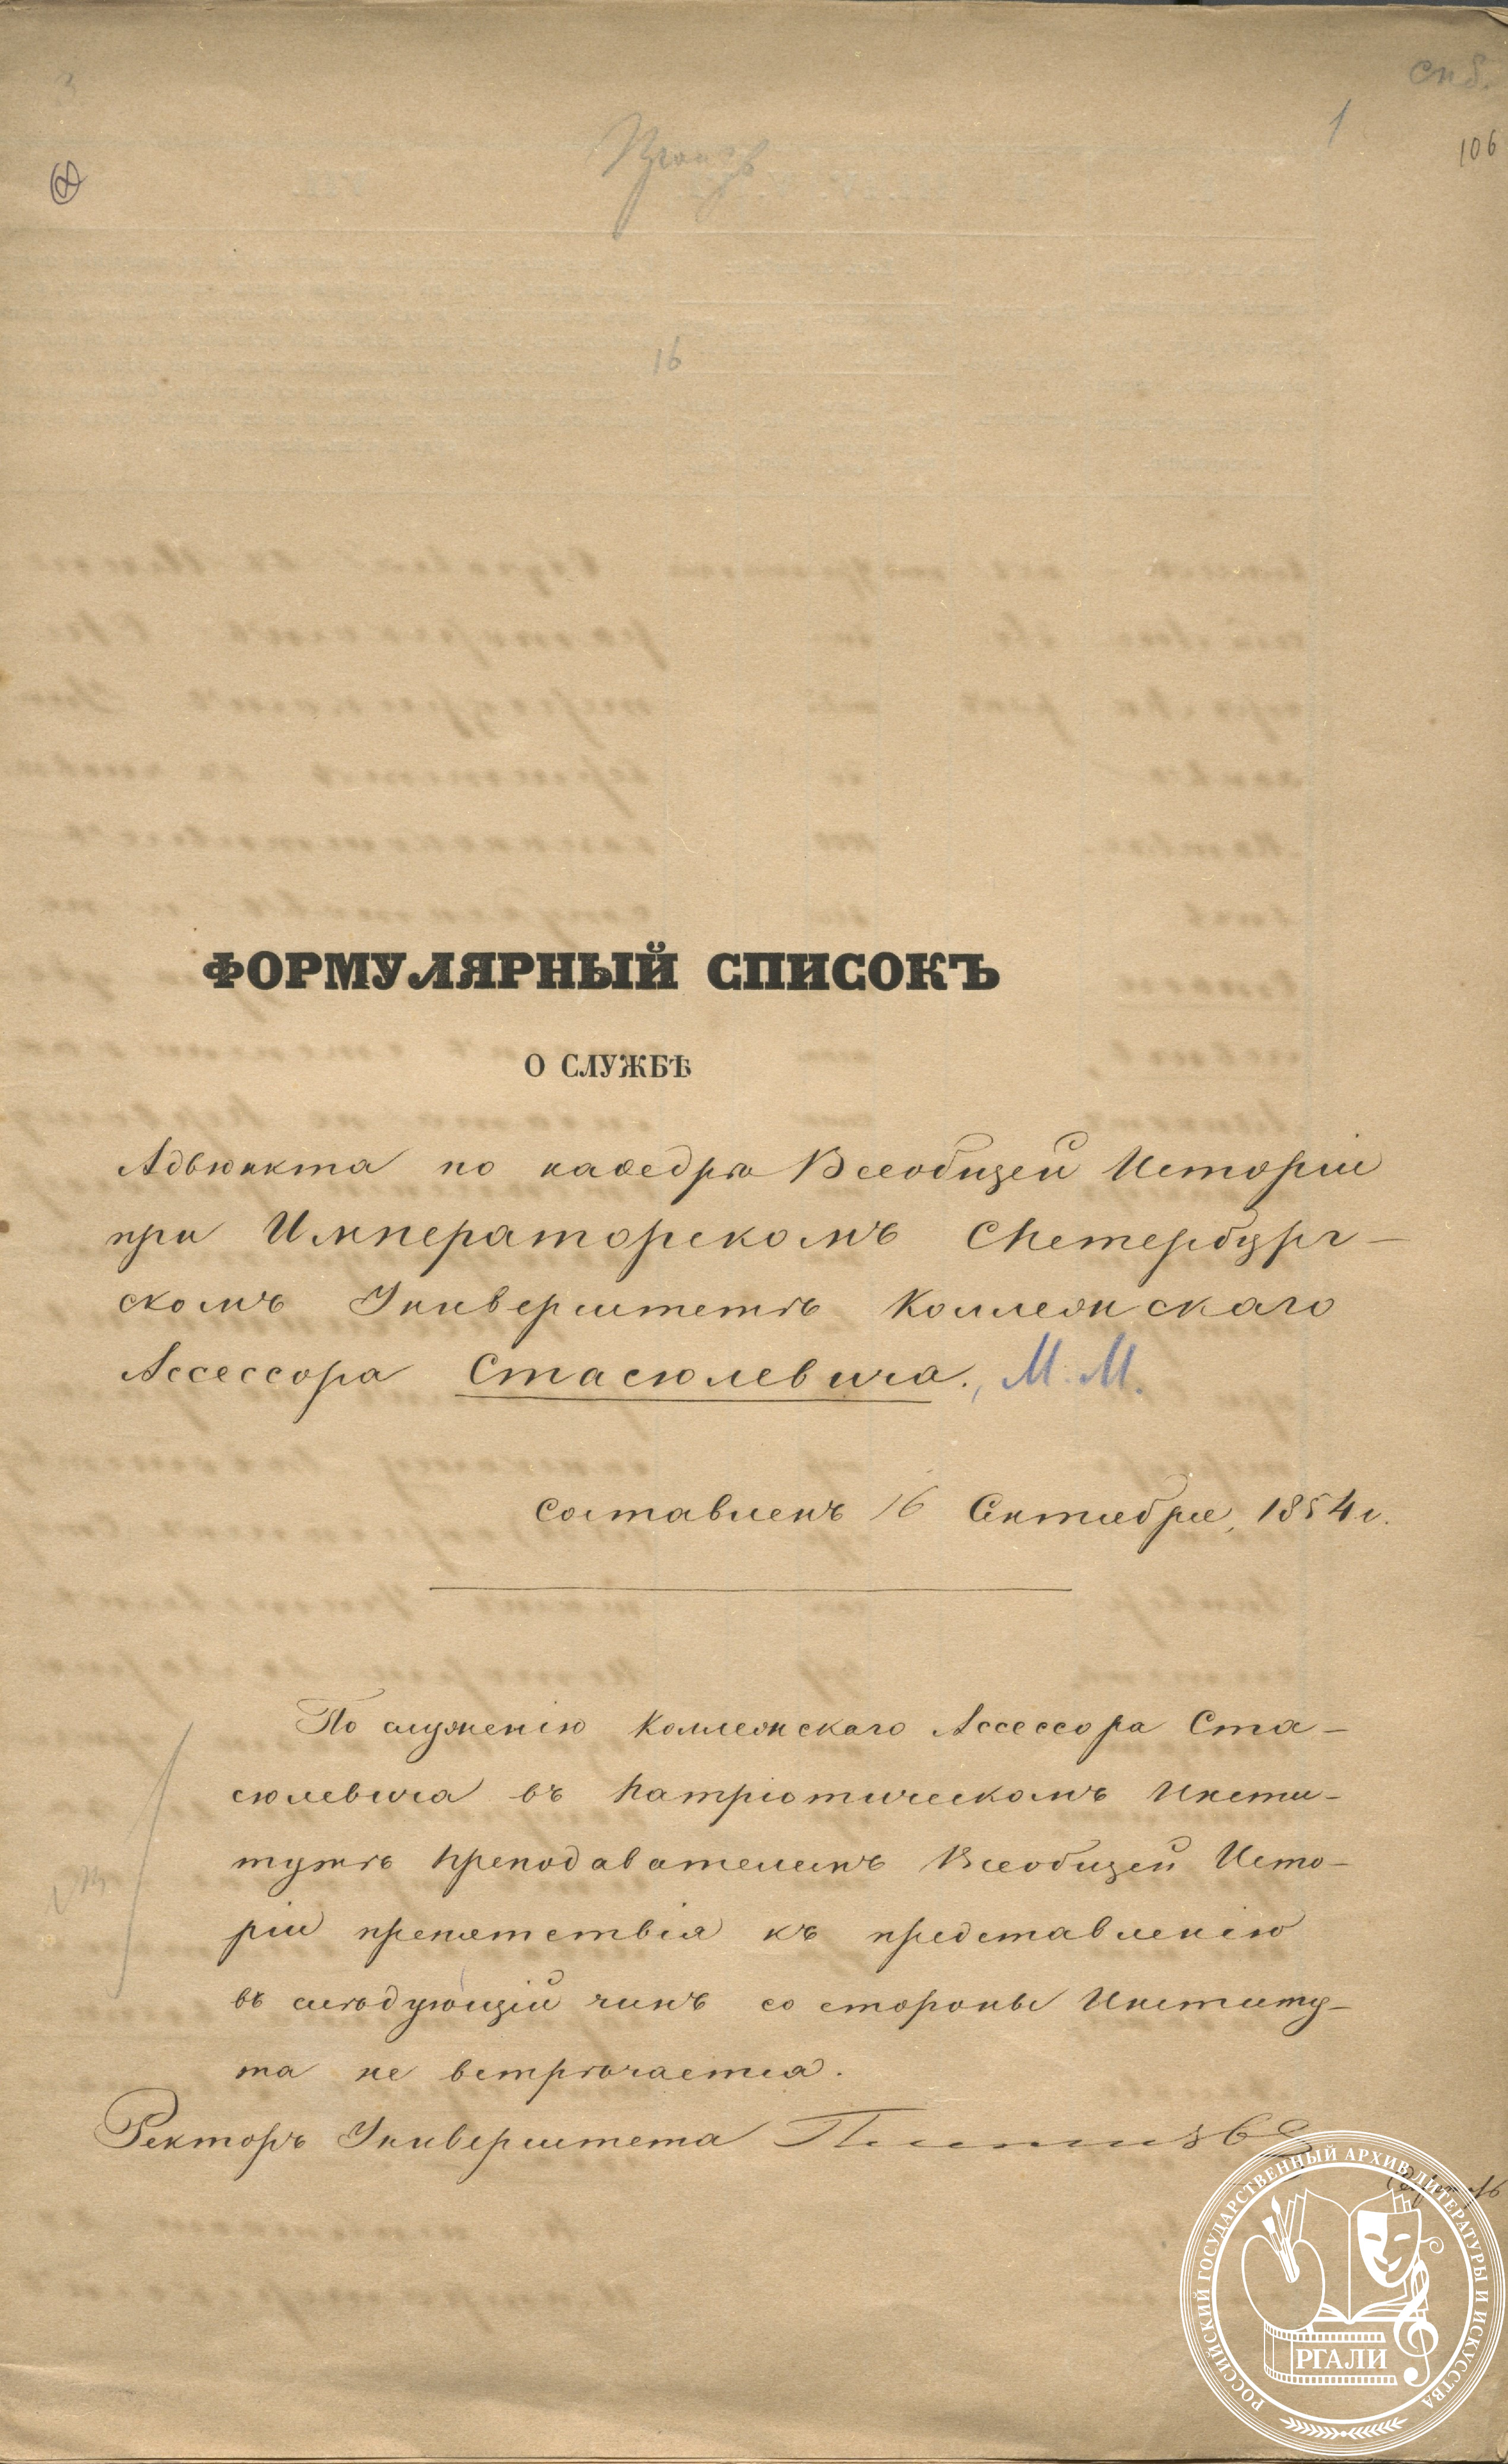 спб.
1
106
16
ФОРМУЛЯРНЫЙ СПИСОКЪ
О СЛУЖБѢ
Адъюнкта по каѳедрѣ Всеобщей Исторіи
при Императорскомъ СПетербург-
скомъ Университетѣ Коллежскаго
Ассессора Стасюлевича., М. М.
составленъ 16 Октября, 1854 г.
По служенію Коллежскаго Ассессора Ста-
сюлевича въ Патріотическомъ Инсти-
тутѣ преподавателемъ Всеобщей Исто-
ріи препятствія къ представленію
въ слѣдующій чинъ со стороны Институ-
та не встрѣчается.
Ректоръ Университета
РОССИЙСКИЙ ГОСУДАРСТВЕННЫЙ АРХИВ ЛИТЕРАТУРЫ И ИСКУССТВА
РГАЛИ